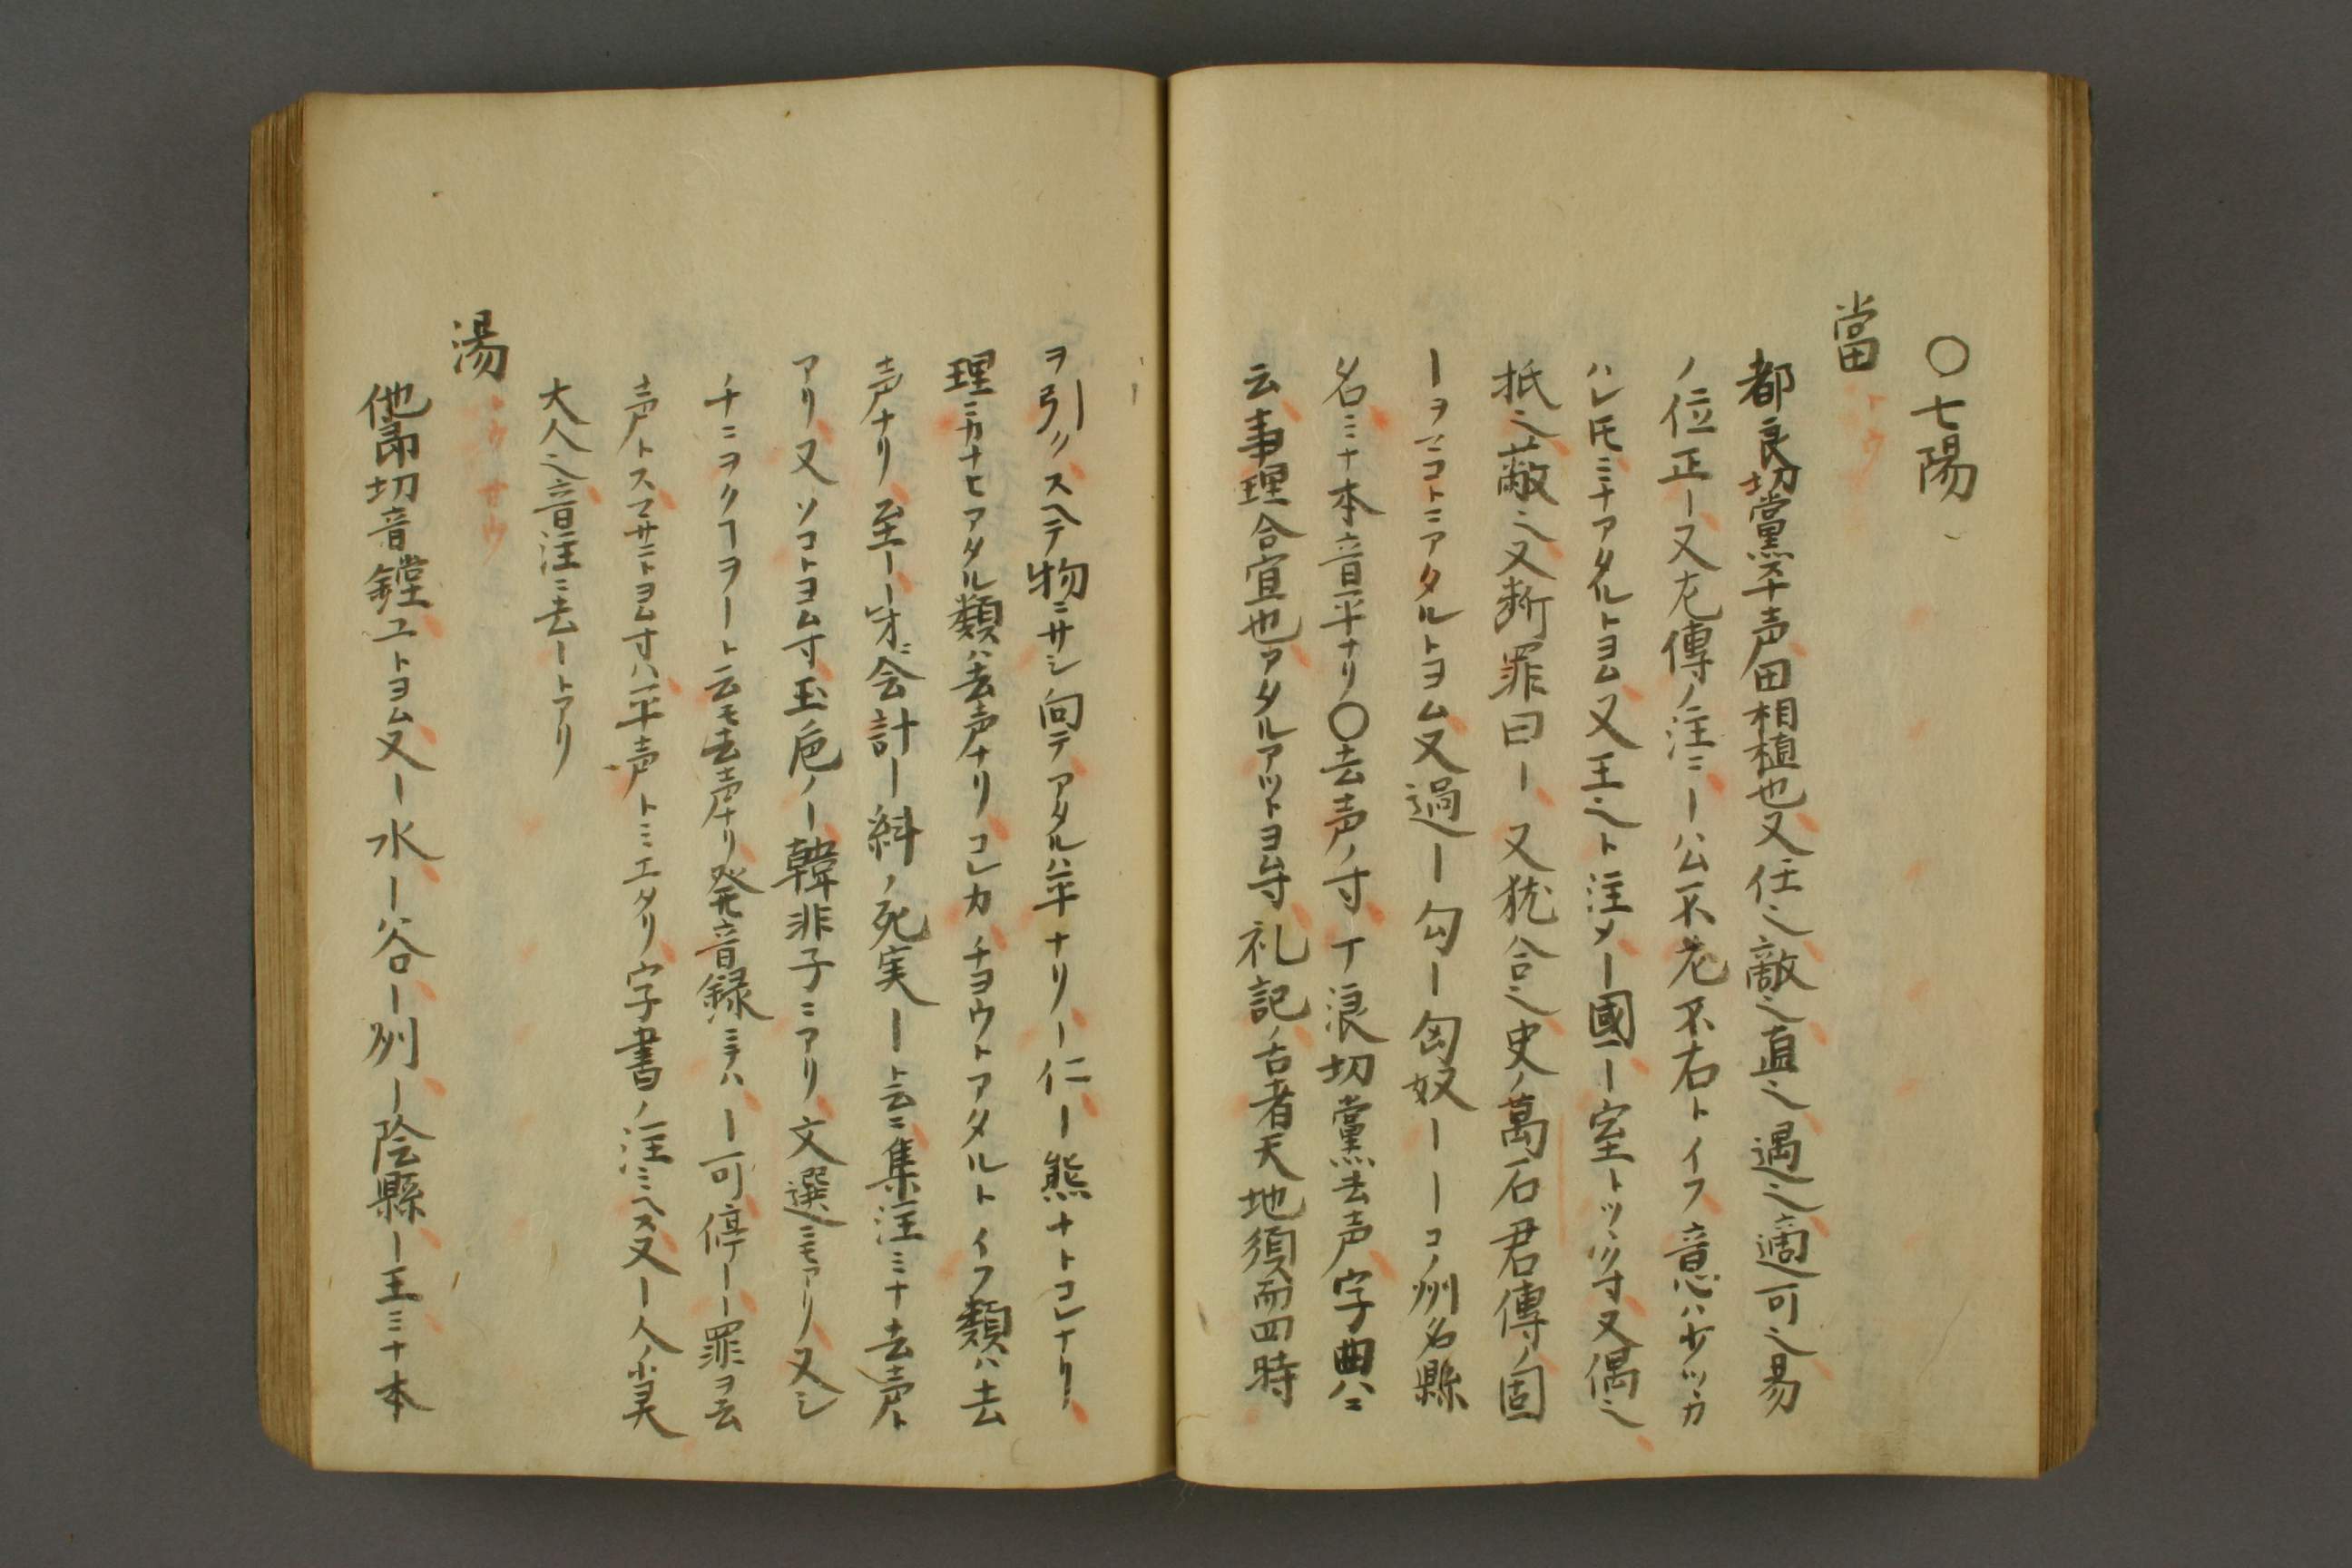 〇七陽
當
トウ
都良切黨平声田相植也又任之敵之直之遇之適可之易
ノ位正ー又左傳ノ注ニーハ公不左不右トイフ意ハ少ツカ
ハレ𪜈ミナアタルトヨム又王之ト注メー國ー室トツヽク寸又偶之
抵之蔽之又断罪曰ー又猶合之史ノ萬石君傳ノ固
ーヲマコトニアタルトヨム又過ー勾ー匈奴ーーコノ州名縣
名ミナ本音平ナリ〇去声ノ寸丁浪切黨去声字典ハニ
云事理合宜也アタルアツトヨム寸礼記ノ古者天地須而四時
ヲ引ノスヘテ物ニサシ向テアタルハ平ナリー仁ー熊ナトコレナリ
理ニカナヒアタル類ハ去声ナリコレカチヨウトアタルトイフ類ハ去
声ナリ至ーー才会計ー料ノ死実ート云ニ集注ミナ去声ト
アリ又ソコトヨム寸玉巵ノー韓非子ニアリ文選ニモアリ又シ
チニヲクヿヲート云モ去声ナリ発音録ニテハー可停ーー罪ヲ云
声トスマサニトヨム寸ハ平声トミエタリ字書ノ注ミヘス又ー人ノ小吴
大人之音注ニ去ートアリ
湯
トウ サウ
他郎切音鏜ユトヨム又ー水ー谷ー州ー陰縣ー王ミナ本